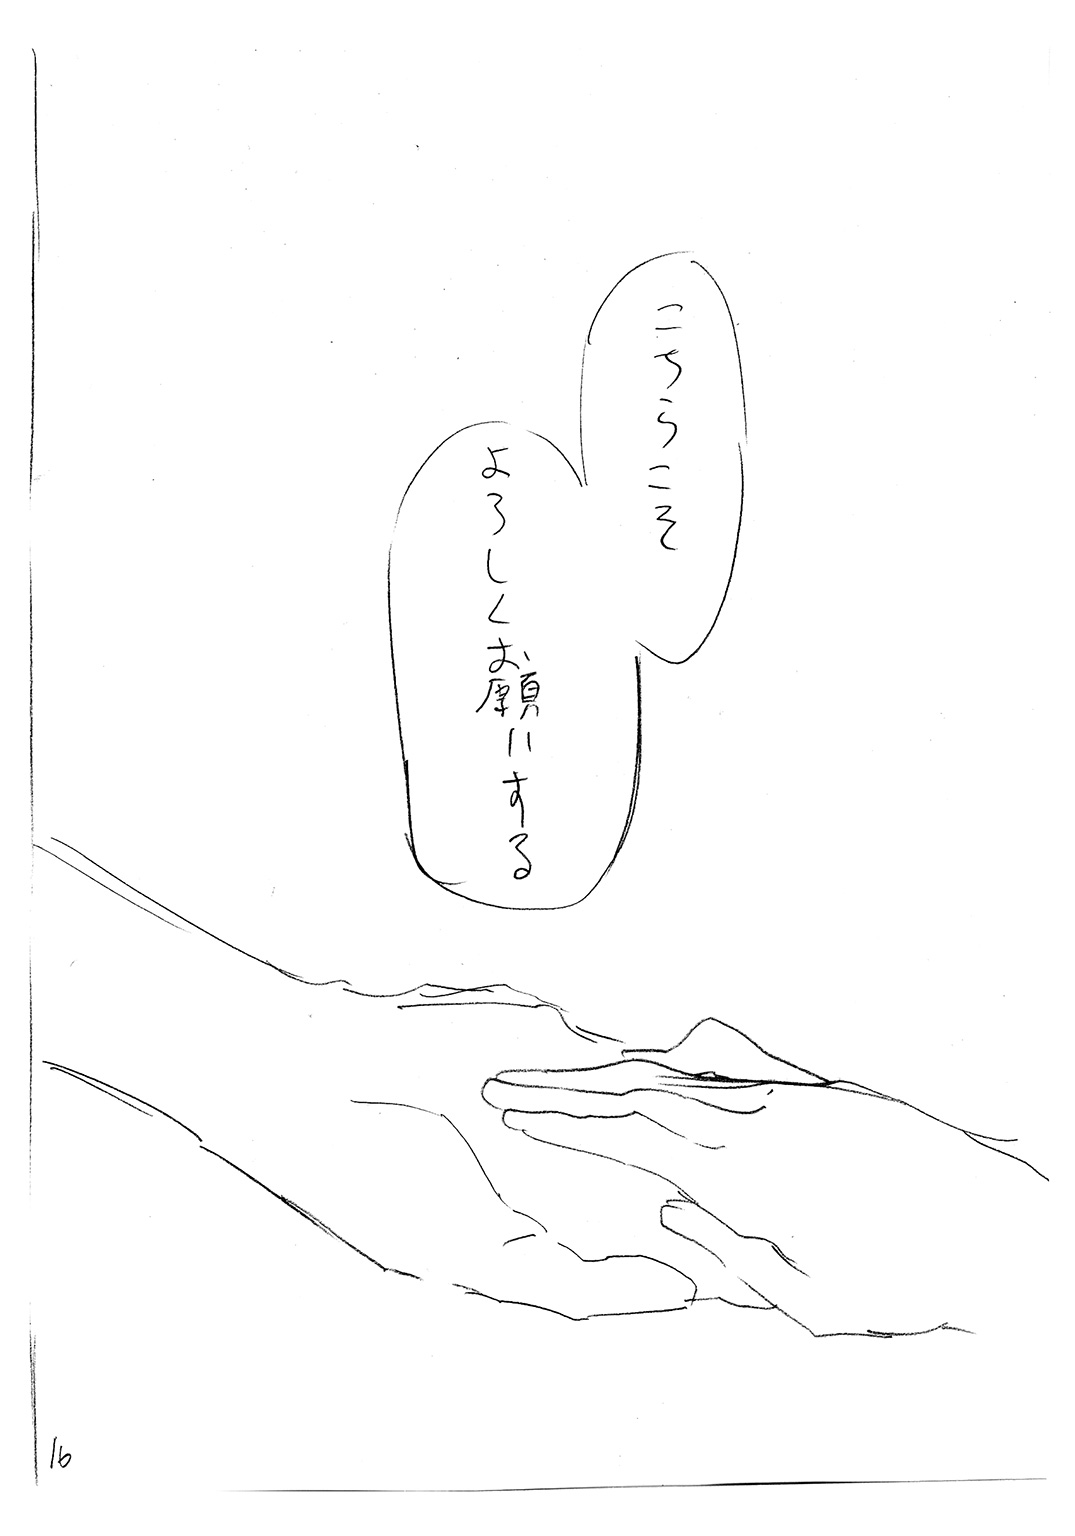 こちらこそ
よろしくお願いする
16